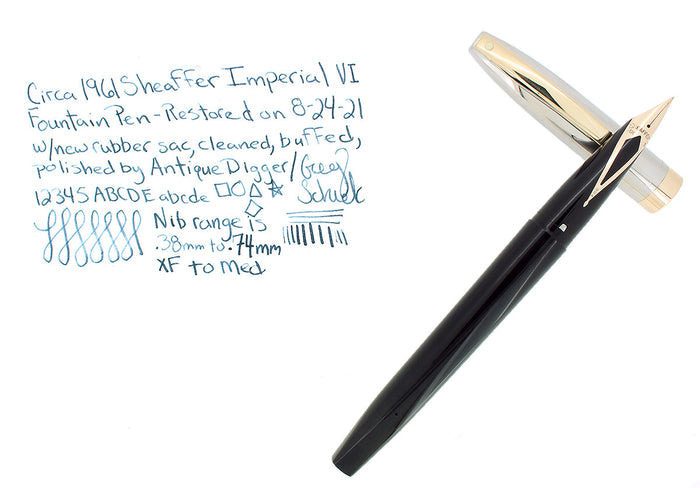 Circa 1961 Sheaffer Imperial VI
Fountain Pen-Restored on 8-24-21
w/new rubber sac, cleaned, buffed,
polished by Antique Digger/Greg
12345 ABCDE abcde
Nib range is
.38mm to .74mm
XF to Med